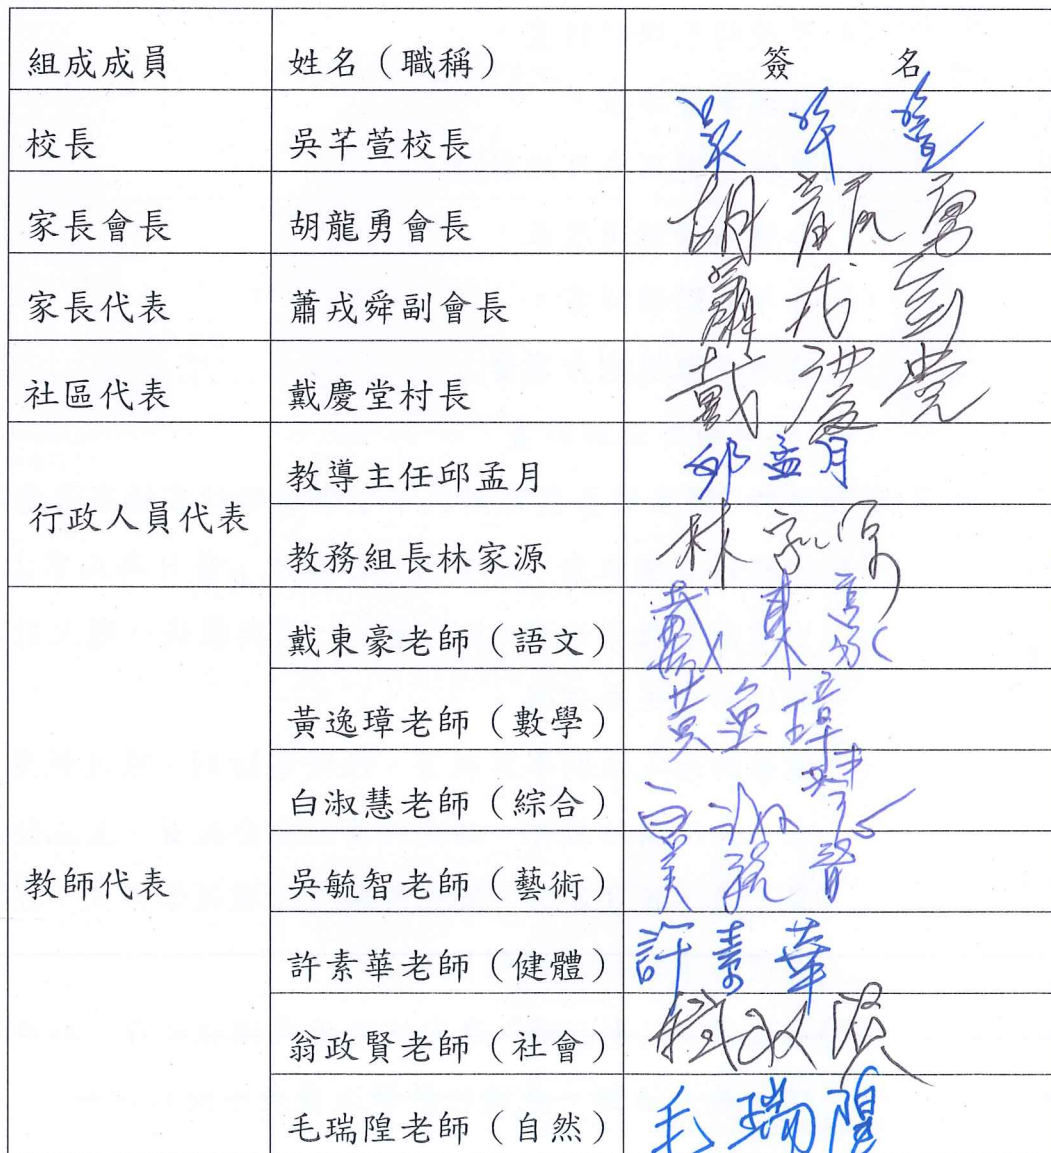 組成成員 姓名（職稱） 簽 名
校長 吳芊萱校長 吳芊萱
家長會長 胡龍勇會長 胡龍勇
家長代表 蕭戎舜副會長 蕭戎
社區代表 戴慶堂村長 戴慶堂
行政人員代表
教導主任邱孟月 邱孟月
教務組長林家源 林家源
教師代表
戴東豪老師（語文） 戴東豪
黃逸璋老師（數學） 黃逸璋
白淑慧老師（綜合） 白淑慧
吳毓智老師（藝術） 吳毓智
許素華老師（健體） 許素華
翁政賢老師（社會）
毛瑞隍老師（自然） 毛瑞隍